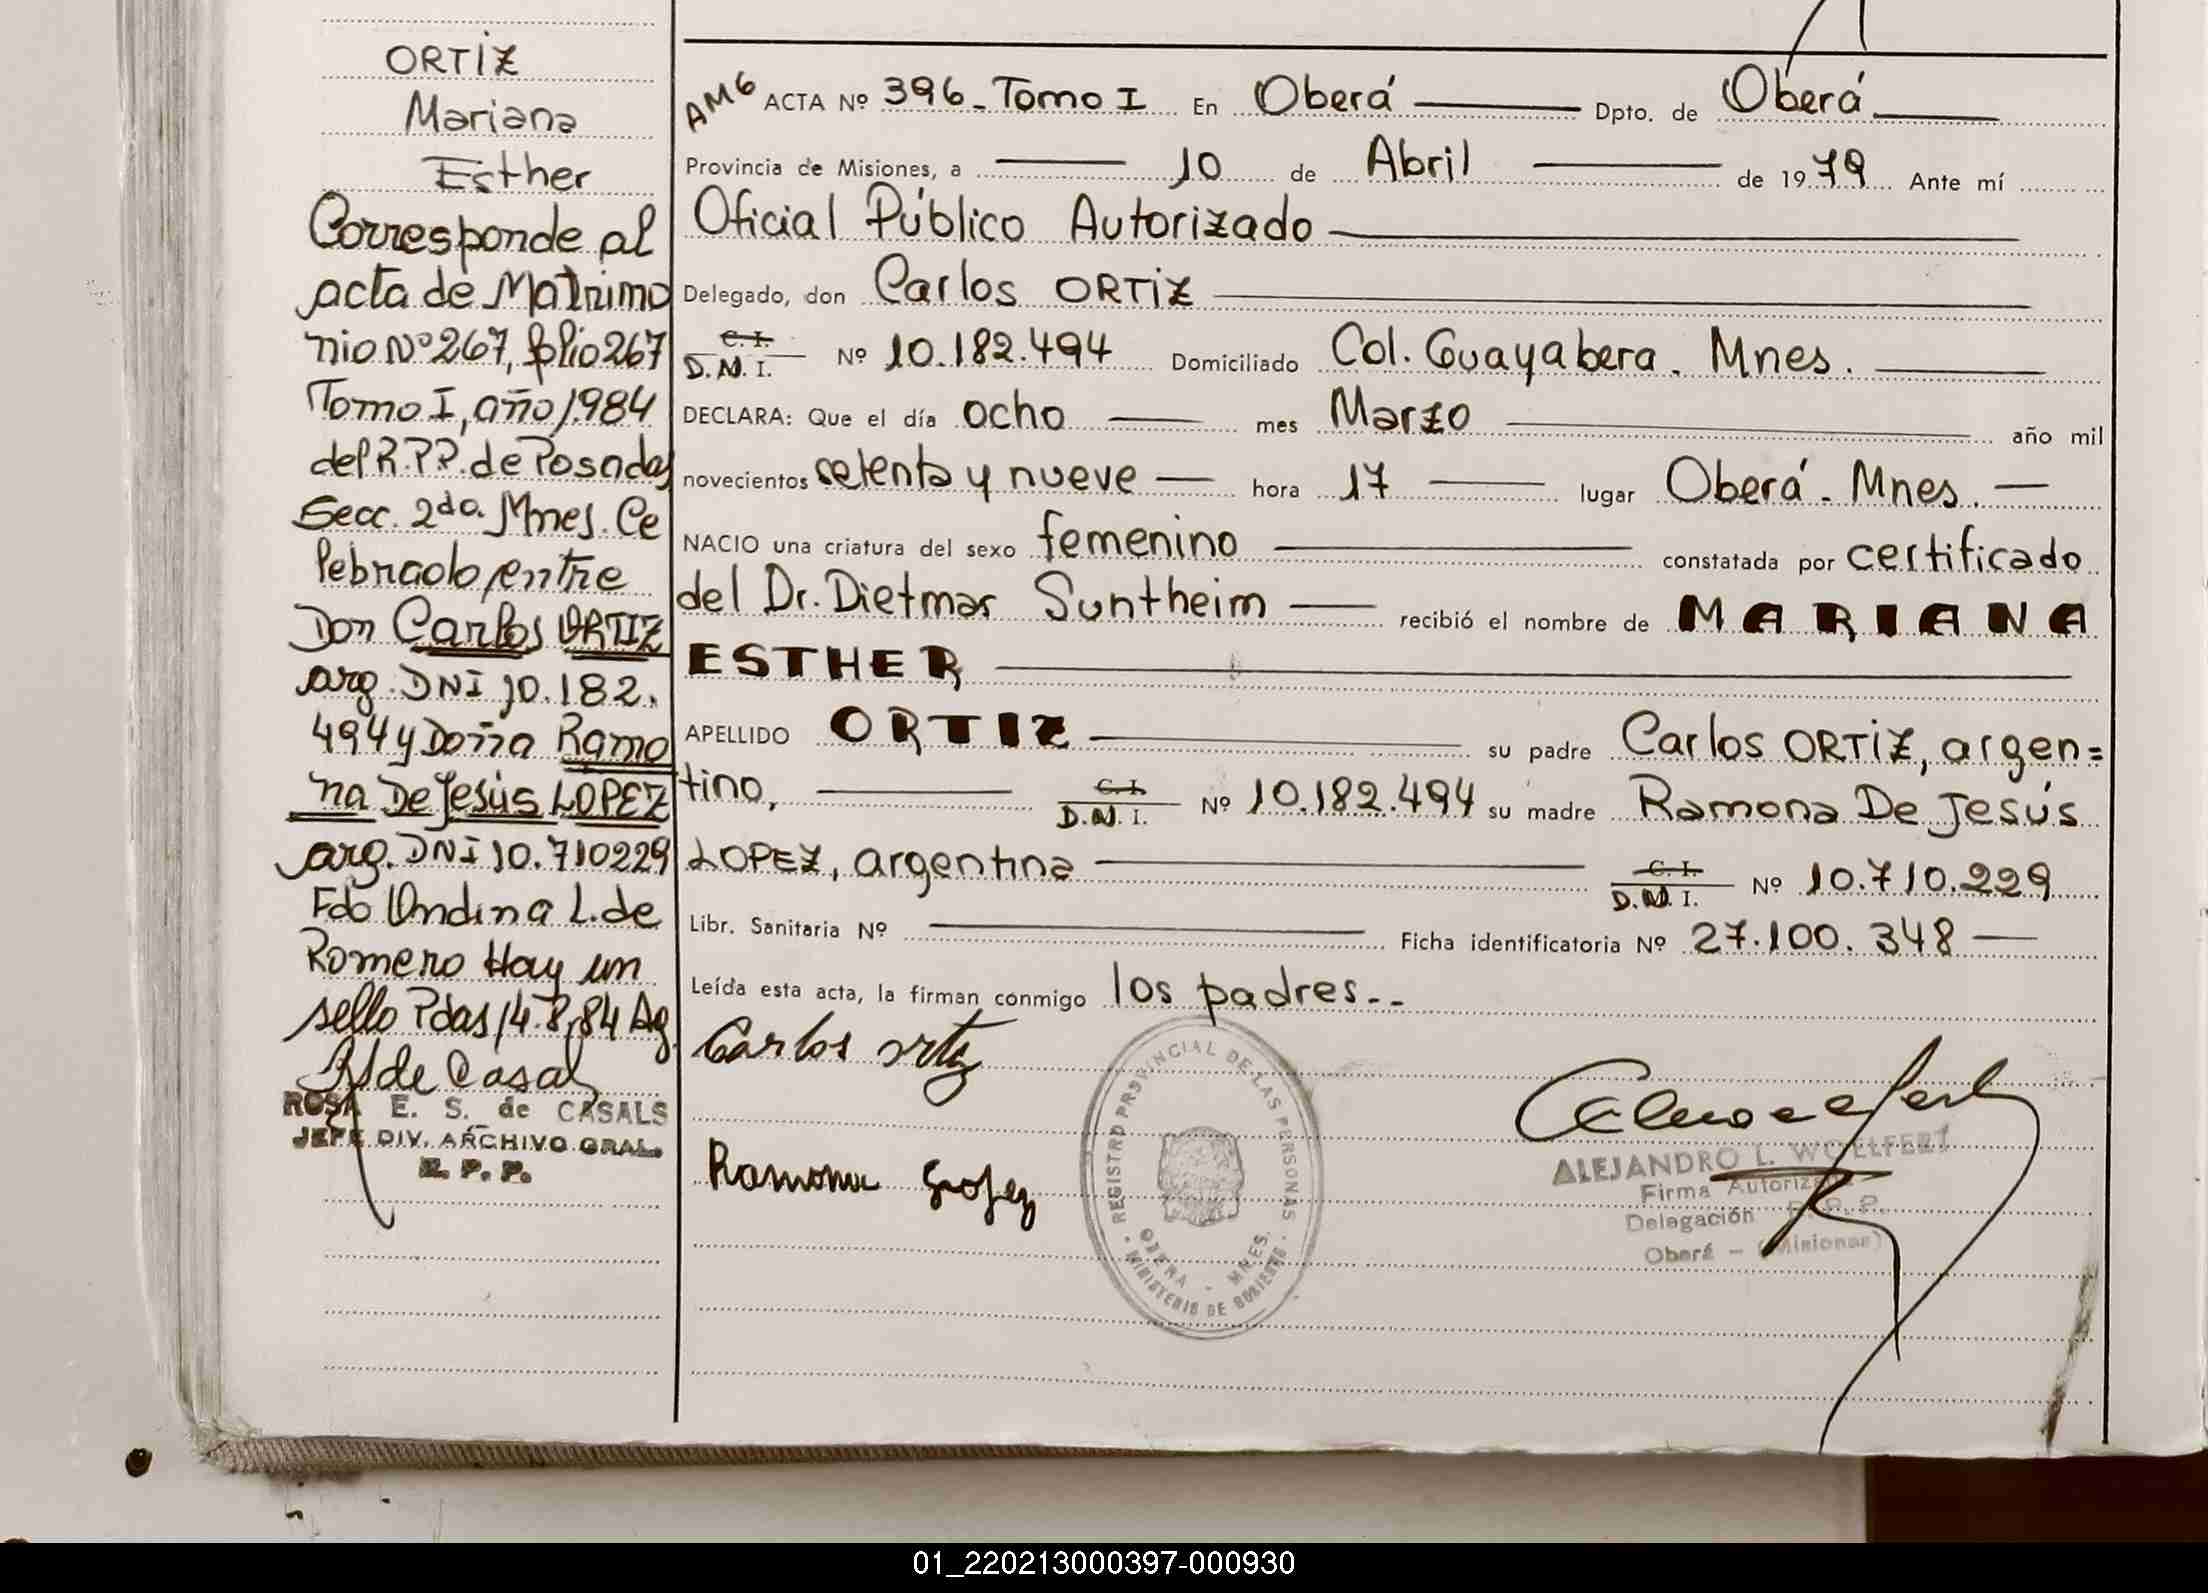 ORTIZ
Mariana
Esther
Corresponde al
acta de Matrimo
nio Nº 267, folio 267
Tomo I, año 1984
del R.P.P. de Posadas
Secc. 2da. Mnes. Ce
lebrado entre
Don Carlos ORTIZ
arg. DNI 10.182.
494 y Doña Ramo
na De Jesús LOPEZ
arg. DNI 10.710229
Fdo Ondina L. de
Romero Hay un
sello Pdas 14.8.84 Ag
R S de Casals
ROSA E. S. de CASALS
JEFE DIV. ARCHIVO GRAL.
R. P. P.
AMG ACTA Nº 396 - Tomo I En Oberá Dpto. de Oberá
Provincia de Misiones, a 10 de Abril de 1979 Ante mí
Oficial Público Autorizado
Delegado, don Carlos ORTIZ
C. I. D. N. I. Nº 10.182.494 Domiciliado Col. Guayabera. Mnes.
DECLARA: Que el día ocho mes Marzo año mil
novecientos setenta y nueve hora 17 lugar Oberá. Mnes.
NACIO una criatura del sexo femenino constatada por certificado
del Dr. Dietmar Suntheim recibió el nombre de MARIANA
ESTHER
APELLIDO ORTIZ su padre Carlos ORTIZ, argen=
tino, C. I. D. N. I. Nº 10.182.494 su madre Ramona De Jesús
LOPEZ, argentina C. I. D. N. I. Nº 10.710.229
Libr. Sanitaria Nº Ficha identificatoria Nº 27.100.348
Leída esta acta, la firman conmigo los padres..
Carlos ortiz
Ramona Lopez
REGISTRO PROVINCIAL DE LAS PERSONAS
OBERA - MNES.
MINISTERIO DE GOBIERNO
ALEJANDRO L. WOELFERT
Firma Autorizada
Delegación R. P. P.
Oberá - (Misiones)
01_220213000397-000930